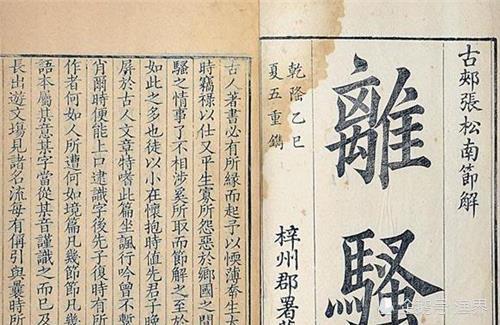 古郟張松南節解
離騷
梓州郡署
乾隆乙巳
夏五重鐫
古人著書必有所緣而起予以愞薄奉生
時竊祿以仕又平生寡所怨惡於鄉國之間
騷之情事了不相涉奚所取而節解之至於
如此之多也徒以小在懷抱時值先君子晚
屏於古人文章特嗜此扁坐諷行吟曾不暫
肖爾時便能上口逮識字後先子復時有所
作者何如人所遭何如境篇凡幾節節凡
語本屬某意某字當從某音謹識之而已及
長出遊文場見諸名流每有偁引與曩時所